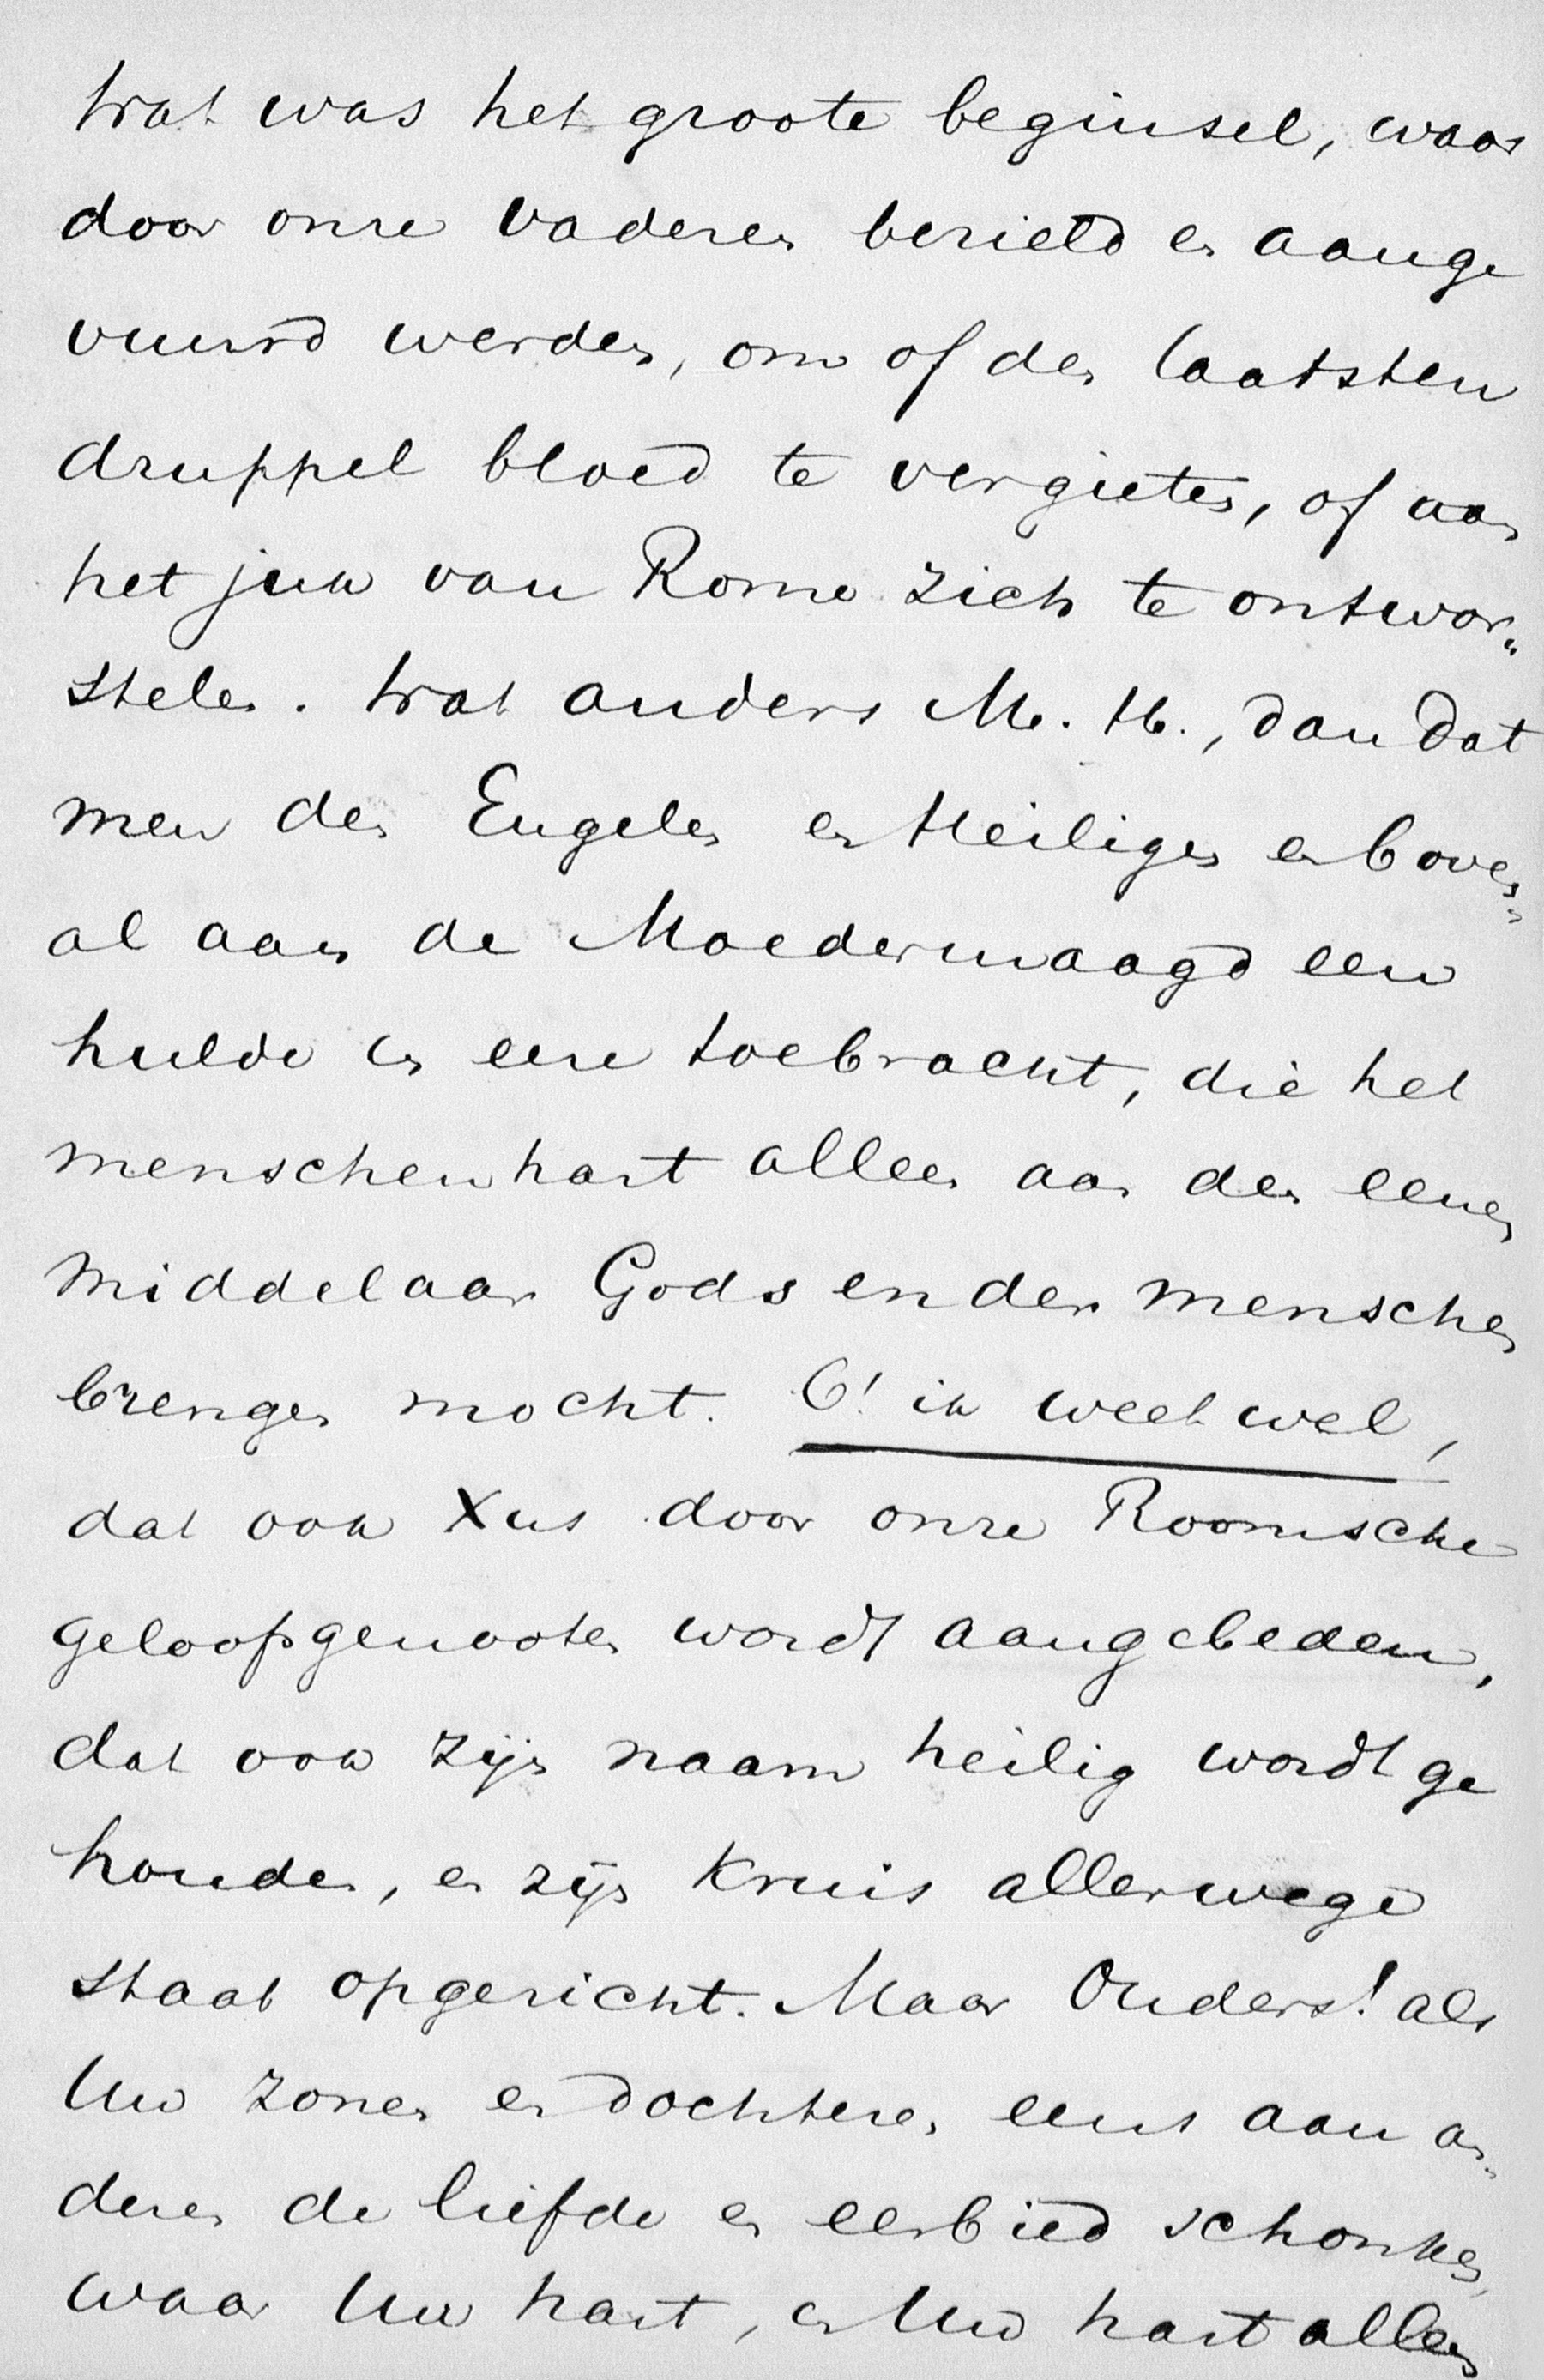 Wat was het groote beginsel, waar
door onze vaderen bezield en aange
vuurd werden, om of den laatsten
druppel bloed te vergieten, of aan
het juk van Rome zich te ontwor„
stelen. Wat anders M. H., dan dat
men den Engelen en Heiligen en boven„
al aan de Moedermaagd een
hulde en eere toebracht, die het
menschenhart alleen aan den eenen
Middelaar Gods en der menschen
brengen mocht. O! ik weet wel,
dat ook Xus door onze Roomsche
geloofsgenooten wordt aangebeden,
dat ook zijn naam heilig wordt ge
houden, en zijn kruis allerwege
staat opgericht. Maar Ouders! als
Uw zonen en dochteren eens aan an„
deren de liefde en eerbied schonken,
waar Uw hart, en Uw hart alleen